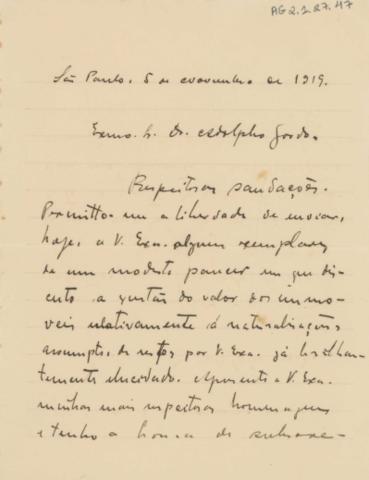 AG2.2.27.47
São Paulo, 5 de novembro de 1919.
Exmo. Sr. Dr. Adolpho Gordo.
Respeitosas saudações.
Permitto-me a liberdade de enviar,
hoje, a V. Exa. alguns exemplares
de um modesto parecer em que dis-
cuto a questão do valor dos immo-
veis relativamente á naturalisação,
assumpto, de resto, por V. Exa. já brilhan-
temente elucidado. Apresento a V. Exa.
minhas mais respeitosas homenagens
e tenho a honra de subscre-